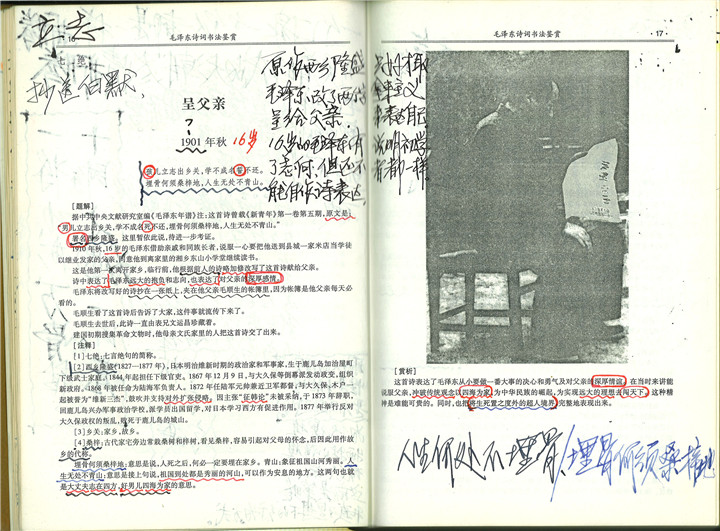 立志
16
毛泽东诗词书法鉴赏
抄送伯默
呈父亲
?
1901年秋 16岁
孩儿立志出乡关，学不成名誓不还。
埋骨何须桑梓地，人生无处不青山。
原作西乡隆盛
毛泽东改了两个
呈给父亲。
16岁的毛泽东有
了志向，但还不
能自作诗表达
【题解】
据中共中央文献研究室编《毛泽东年谱》注：这首诗曾载《新青年》第一卷第五期，原文是：
“男儿立志出乡关，学不成名死不还，埋骨何须桑梓地，人生无处不青山。”
署名西乡隆盛。这里暂依此说，待进一步考证。
1910年秋，16岁的毛泽东借助亲戚和同族长者，说服一心要把他送到县城一家米店当学徒
以继业发家的父亲，同意他到离家里的湘乡东山小学堂继续读书。
这是他第一次离开家乡，临行前，他根据前人的诗略加修改写了这首诗献给父亲。
诗中表达了毛泽东远大的抱负和志向，也表达了对父亲的深厚感情。
毛泽东将改写好的诗抄在一张纸上，夹在他父亲毛顺生的帐簿里，因为帐簿是他父亲每天必
看的。
毛顺生看了这首诗后告诉了大家，这件事就流传下来了。
毛顺生去世后，此诗一直由表兄文运昌珍藏着。
建国初期搜集革命文物时，他母亲文氏家里的人把这首诗交了出来。
【注释】
[1]七绝：七言绝句的简称。
[2]西乡隆盛(1827—1877年)，日本明治维新时期的政治家和军事家，生于鹿儿岛加治屋町
下级武士家庭，1844年起担任下级官吏。1867年12月9日，与大久保等倒幕派发动政变，组织
新政府。1868年被任命为陆海军负责人。1872年任陆军元帅兼近卫军都督；与大久保、木户一
起被誉为“维新三杰”，鼓吹并支持对外扩张侵略。因主张“征韩论”未被采纳，于1873年辞职，
回鹿儿岛兴办军事政治学校，派学员出国留学，对日本学习西方有促进作用。1877年举行反对
大久保政权的叛乱，战死于鹿儿岛的城山。
[3]乡关：家乡，故乡。
[4]桑梓：古代家宅旁边常栽桑树和梓树，看见桑梓，容易引起对父母的怀念，后因此用作故
乡的代称。
埋骨何须桑梓地：意思是说，人死之后，何必一定要埋在家乡。青山：象征祖国山河秀丽。人
生无处不青山：意思是接上句说，祖国到处都是秀丽的河山，可以作为安息的地方。这两句也就
是大丈夫志在四方，好男儿四海为家的意思。
毛泽东诗词书法鉴赏
·17·
【赏析】
这首诗表达了毛泽东从小要做一番大事的决心和勇气及对父亲的深厚情谊。在当时来讲能
说服父亲，冲破传统观念以四海为家，为中华民族的崛起，为实现远大的理想去闯天下。这种精
神是难能可贵的。同时，也把将生死置之度外的超人境界，完整地表现出来。
人生何处不埋骨，埋骨何须桑梓地